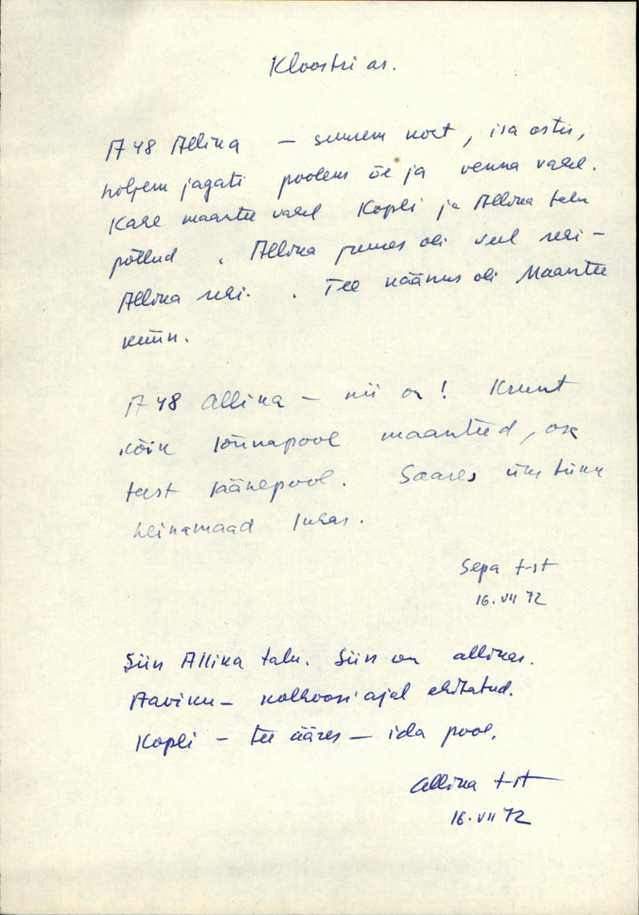 Kloostri as.
A 48 Allika – suurem koht, isa ostis,
hiljem jagati pooleks õe ja venna vahel.
Kahe maantee vahel Kopli ja Allika talu
põllud. Allika juures oli veel
Allika . Tee käänus oli Maantee
kõik lõunapool maanteed, osa
teest läänepool. Saares üks tükk
heinamaad lisas.
A 48 Allika – nii on! Krunt
Sepa t-st
16. VII 72
Siin Allika talu. Siin on allikas.
Aaviku – kolhoosi ajal ehitatud.
Kopli – tee ääres – ida pool.
Allika t-st
16. VII 72